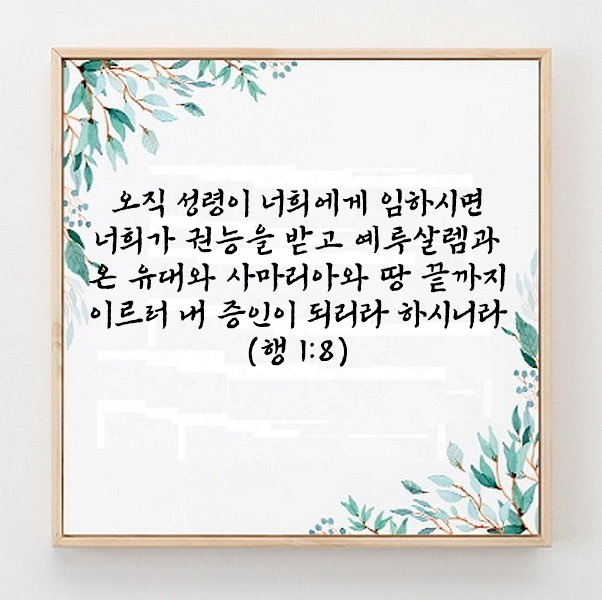 오직 성령이 너희에게 임하시면
너희가 권능을 받고 예루살렘과
온 유대와 사마리아와 땅 끝까지
이르러 내 증인이 되리라 하시니라
(행 1:8)